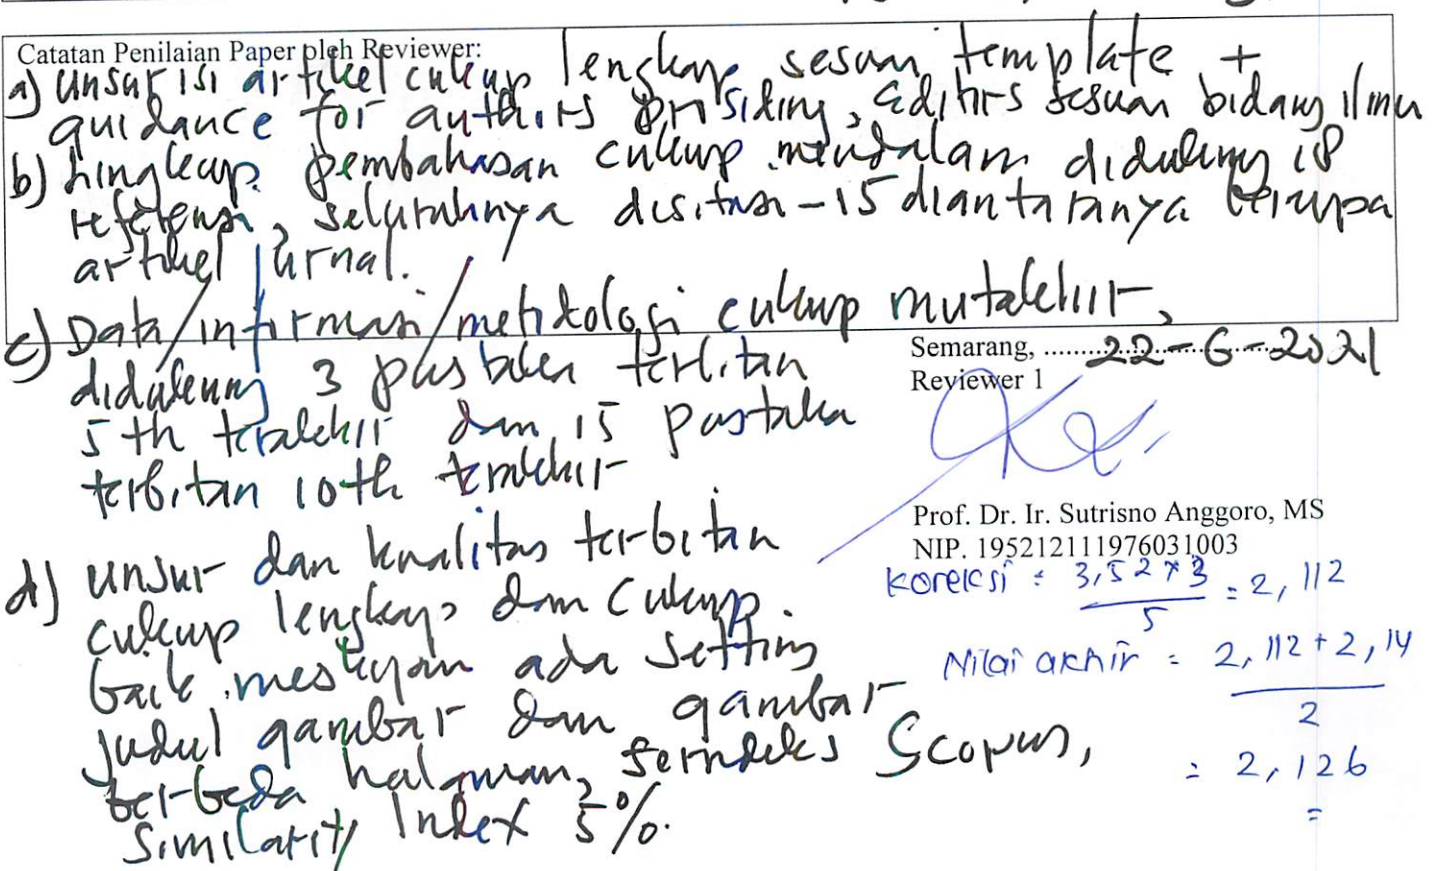 Catatan Penilaian Paper oleh Reviewer:
a) unsur isi artikel cukup lengkap sesuai template +
guidance for authors prosiding, editors sesuai bidang ilmu
b) lingkup pembahasan cukup mendalam didukung 18
referensi, seluruhnya disitasi - 15 diantaranya berupa
artikel jurnal.
c) Data/informasi/metodologi cukup mutakhir,
didukung 3 pustaka terbitan
5 th terakhir dan 15 pustaka
terbitan 10 th terakhir
d) unsur dan kualitas terbitan
cukup lengkap dan cukup
baik meskipun ada setting
judul gambar dan gambar
berbeda halaman, terindeks Scopus,
Similarity Index %.
Semarang, ........22-6-2021
Reviewer 1
Prof. Dr. Ir. Sutrisno Anggoro, MS
NIP. 195212111976031003
Koreksi = 3,52 x 3 / 5 = 2,112
Nilai akhir = 2,112 + 2,14 / 2
= 2,126